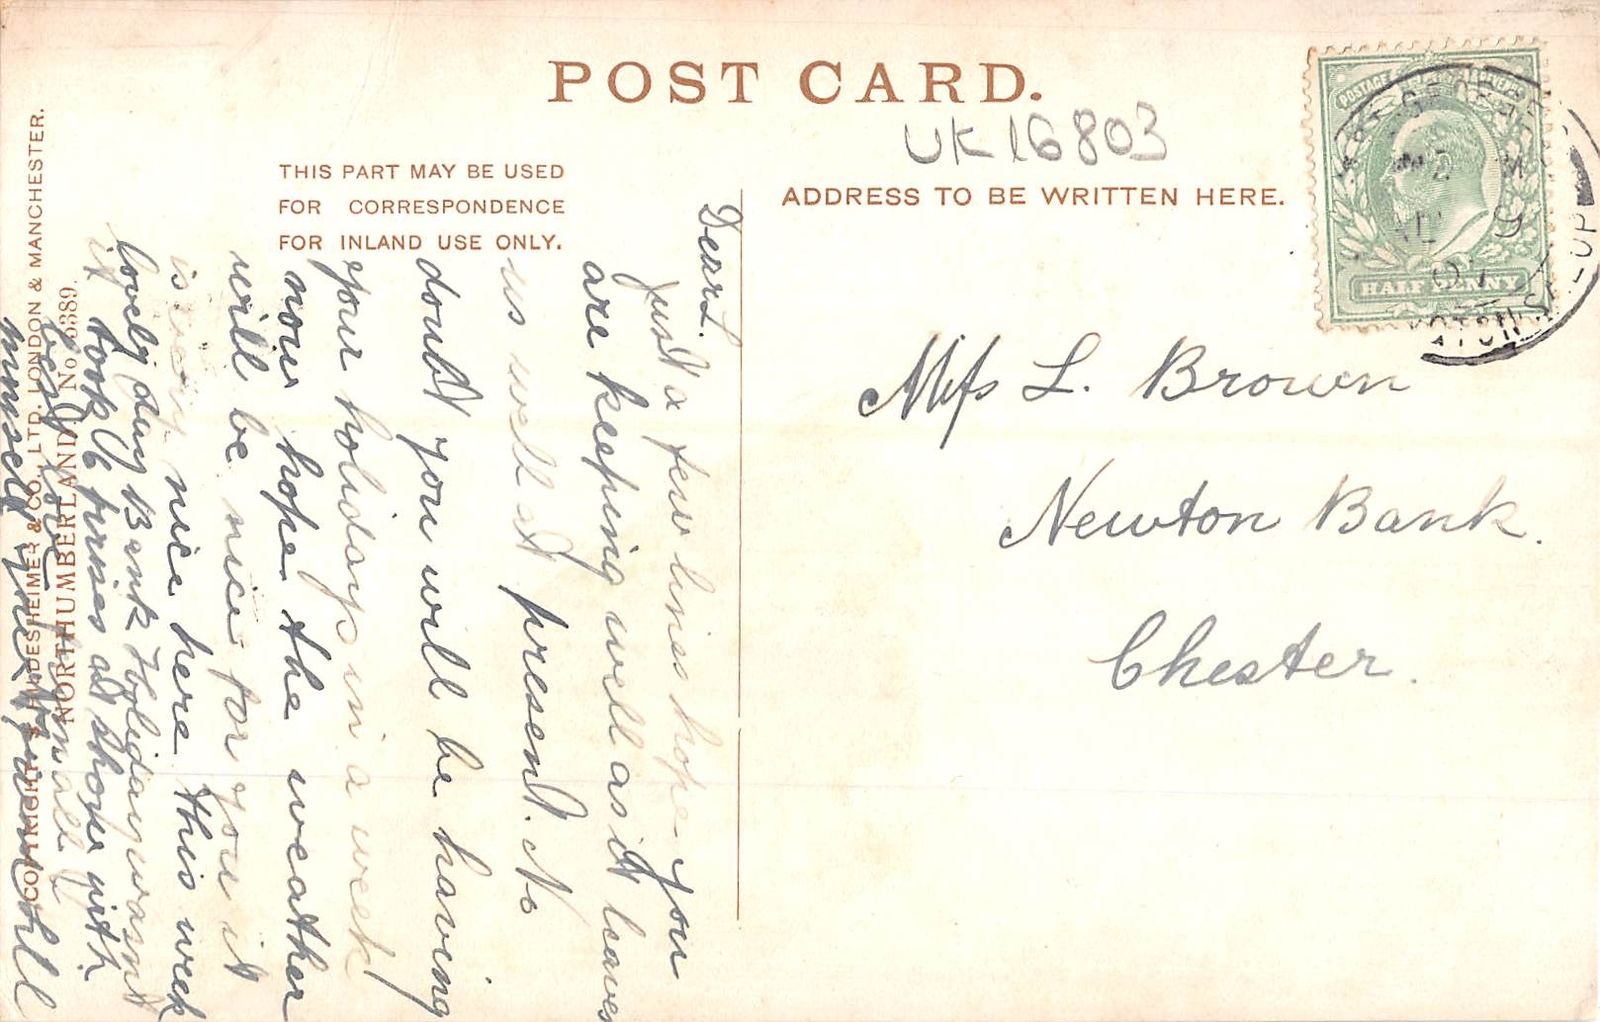 POST CARD.
UK 16803
THIS PART MAY BE USED
FOR CORRESPONDENCE
FOR INLAND USE ONLY.
ADDRESS TO BE WRITTEN HERE.
POSTAGE
HALF PENNY
Miſs L. Brown
Newton Bank.
Chester.
Dear L.
Just a few lines hope you
are keeping well as it leaves
us well at present. No
doubt you will be having
your holidays in a week
now hope the weather
will be nice for you it
is very nice here this week
lovely day Bank Holiday wasnt
it took 6 prises at show with
best love
COPYRIGHT HILDESHEIMER & CO., LTD. LONDON & MANCHESTER.
NORTHUMBERLAND No 5389.